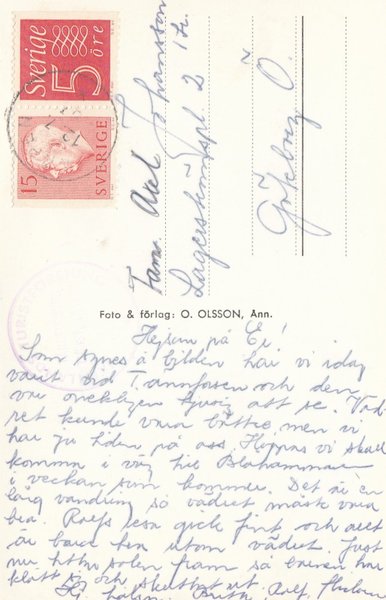 Sverige
5
öre
15
SVERIGE
Fam Axel Johansson
Lagerströmspl 2 1 tr.
Göteborg Ö.
Foto & förlag: O. OLSSON, Ann.
Hejsan på Er!
Som synes å bilden har vi idag
varit vid T.ännforsen och den
var onekligen att se. Väd-
ret kunde vara bättre, men vi
har ju tiden på oss. Hoppas vi skall
komma i väg till Blåhammaren
i veckan som kommer. Det är en
lång vandring så vädret måste vara
bra. Rolfs resa gick fint och allt
är bara bra utom vädret. Just
nu tittar solen fram så barnen har
klätt sig och skuttat ut.
Rolf